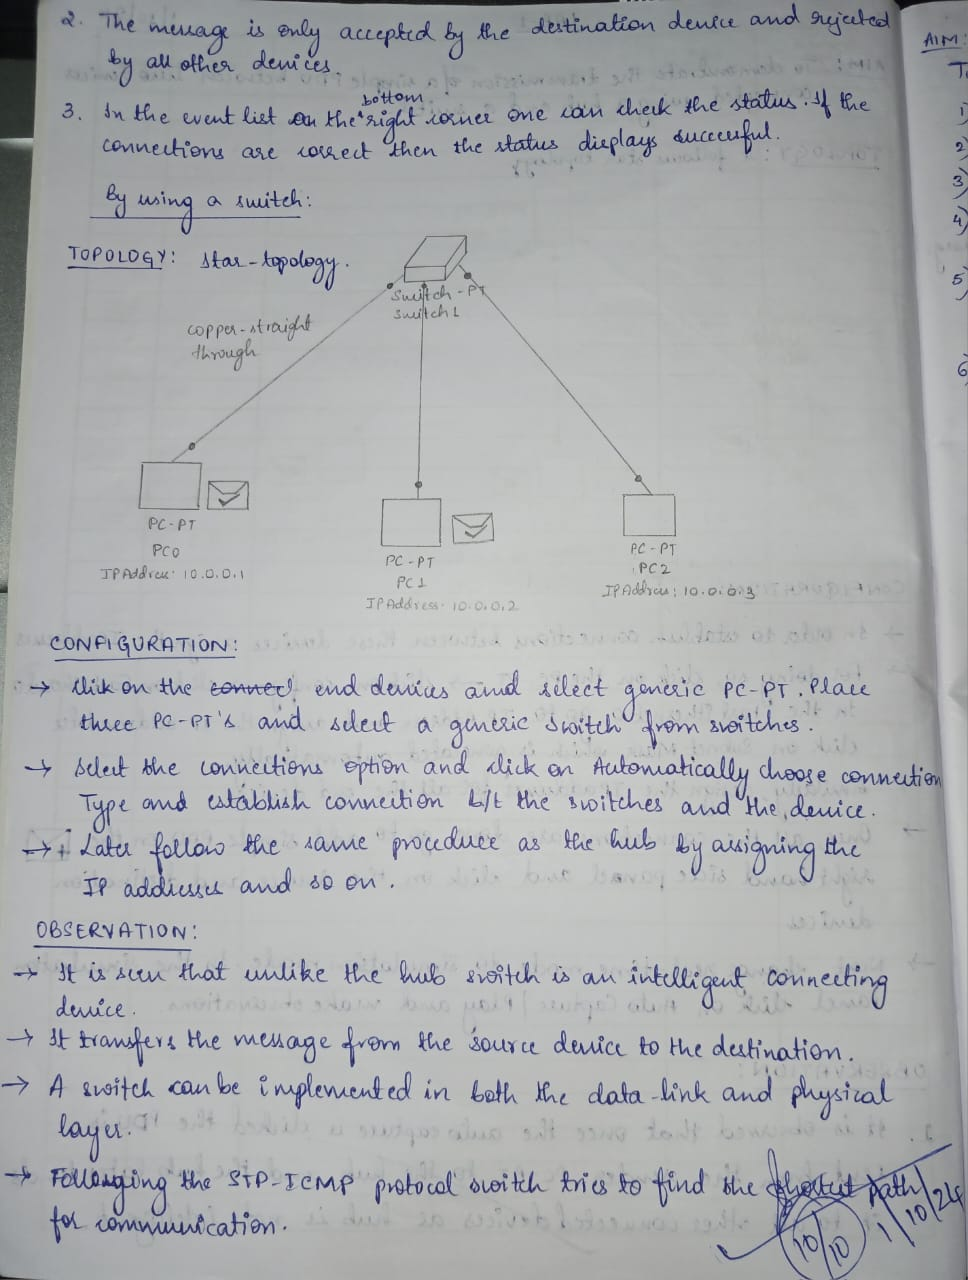 2. The message is only accepted by the destination device and rejected
by all other devices.
bottom
3. In the event list on the right corner one can check the status. If the
connections are correct then the status displays successful.
By using a switch:
TOPOLOGY: Star-topology.
Switch-PT
Switch1
copper-straight
through
PC-PT
PC0
IP Address: 10.0.0.1
PC-PT
PC1
IP Address: 10.0.0.2
PC-PT
PC2
IP Address: 10.0.0.3
CONFIGURATION:
→ Click on the connec end devices and select generic PC-PT. Place
three PC-PT's and select a generic switch from switches.
→ Select the connections option and click on Automatically choose connection
Type and establish connection b/t the switches and the device.
→ Later follow the same procedure as the hub by assigning the
IP addresses and so on.
OBSERVATION:
→ It is seen that unlike the hub switch is an intelligent connecting
device.
→ It transfers the message from the source device to the destination.
→ A switch can be implemented in both the data-link and physical
layer.
→ Follonging the STP-ICMP protocol switch tries to find the shortest path
for communication.
10/10
1/10/24
AIM:
To
1)
2)
3)
4)
5)
6